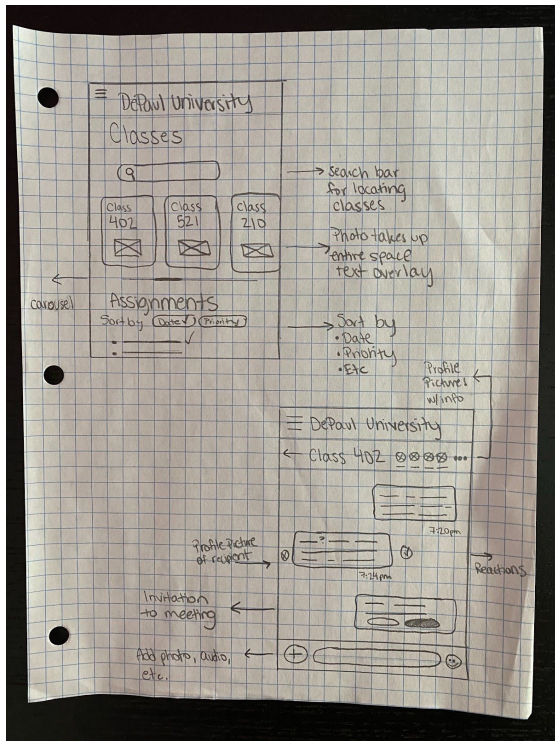 DePaul University
Classes
Search bar
for locating
classes
Class
402
Class
521
Class
210
Photo takes up
entire space
text overlay
carousel
Assignments
Sort by Date Priority
Sort by
• Date
• Priority
• Etc
Profile
Pictures
w/info
DePaul University
Class 402
7:20pm
Profile Picture
of recipient
7:24pm
Reactions
Invitation
to meeting
Add photo, audio,
etc.